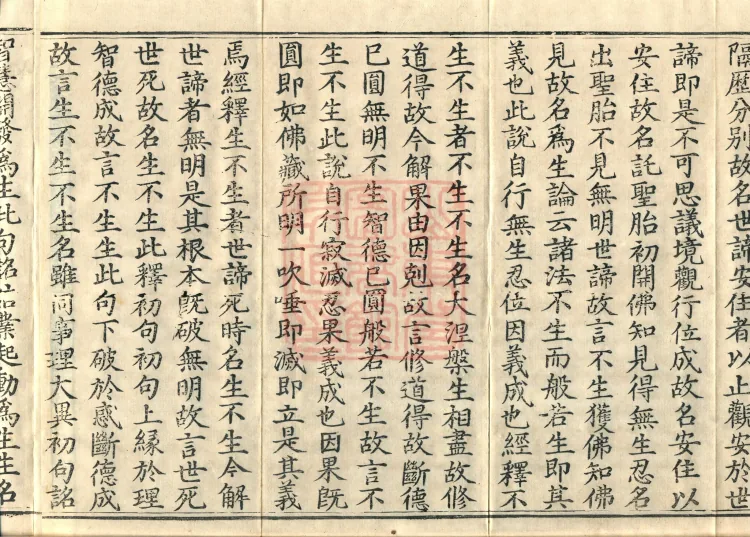 隔歷分別故名世諦安住者以止觀安於世
諦即是不可思議境觀行位成故名安住以
安住故名託聖胎初開佛知見得無生忍名
出聖胎不見無明世諦故言不生獲佛知佛
見故名爲生論云諸法不生而般若生即其
義也此說自行無生忍位因義成也經釋不
生不生者不生不生名大涅槃生相盡故修
道得故今解果由因剋故言修道得故斷德
已圓無明不生智德已圓般若不生故言不
生不生此說自行寂滅忍果義成也因果旣
圓即如佛藏所明一吹唾即滅即立是其義
焉經釋生不生者世諦死時名生不生今解
世諦者無明是其根本旣破無明故言世死
世死故名生不生此釋初句初句上緣於理
智德成故言不生生此句下破於惑斷德成
故言生不生不生名雖同事理大異初句詺
智慧開發爲生此句詺結業起動爲生生名